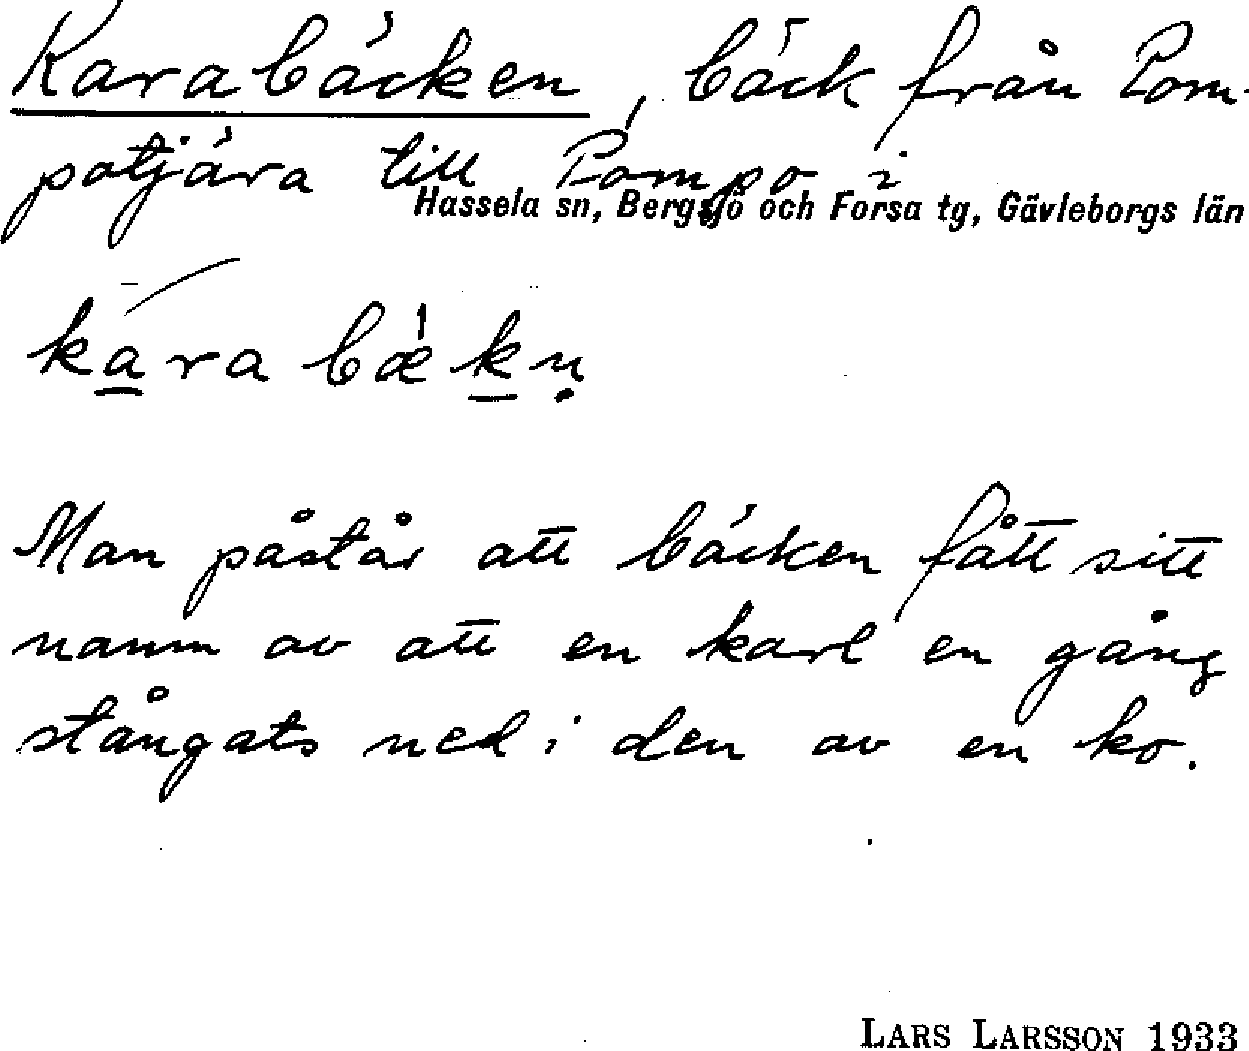 Karabäcken, bäck från Pom-
potjära till Pompo i
Hassela sn, Bergsjö och Forsa tg, Gävleborgs län
kara bækn̥
Man påstår att bäcken fått sitt
namn av att en karl en gång
stångats ned i den av en ko.
LARS LARSSON 1933